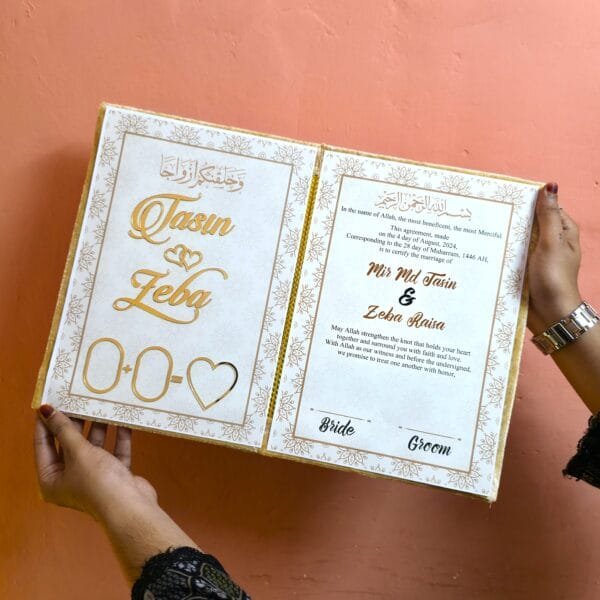 وخلقنكم ازواجا
Tasin
Zeba
0+0=
بسم الله الرحمن الرحيم
In the name of Allah, the most beneficent, the most Merciful.
This agreement, made
on the 4 day of August, 2024,
Corresponding to the 28 day of Muharram, 1446 AH,
is to certify the marriage of
Mir Md Tasin
&
Zeba Raisa
May Allah strengthen the knot that holds your heart
together and surround you with faith and love.
With Allah as our witness and before the undersigned,
we promise to treat one another with honor,
Bride
Groom